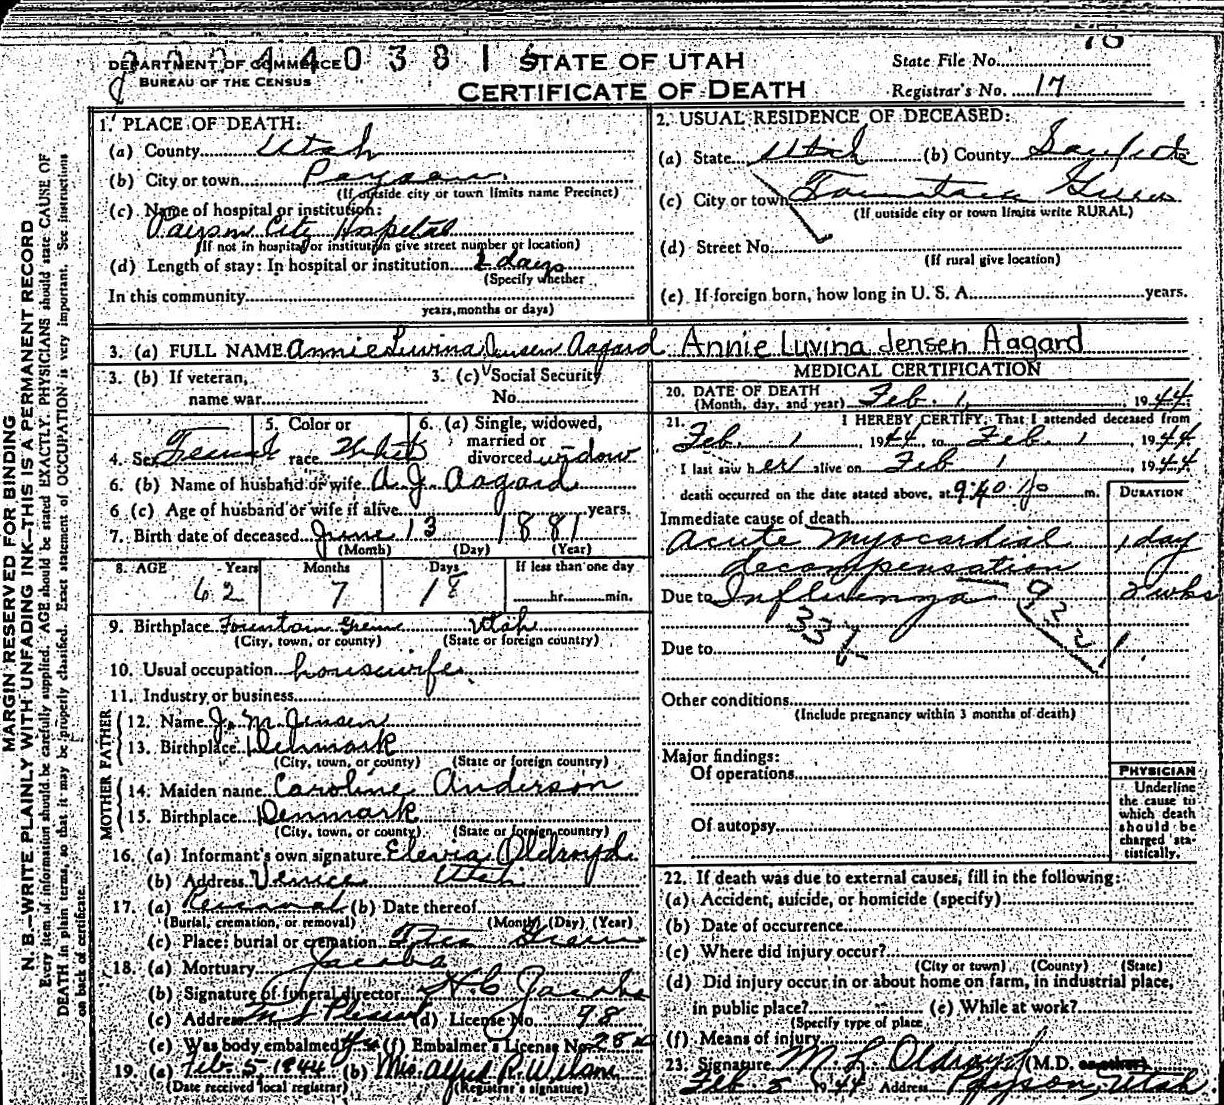 DEPARTMENT OF COMMERCE
BUREAU OF THE CENSUS
STATE OF UTAH
CERTIFICATE OF DEATH
State File No.
Registrar's No. 17
MARGIN RESERVED FOR BINDING
N. B.—WRITE PLAINLY WITH UNFADING INK—THIS IS A PERMANENT RECORD
Every item of information should be carefully supplied. AGE should be stated EXACTLY. PHYSICIANS should state CAUSE OF
DEATH in plain terms, so that it may be properly classified. Exact statement of OCCUPATION is very important. See instructions
on back of certificate.
1. PLACE OF DEATH:
(a) County Utah
(b) City or town Payson
(If outside city or town limits name Precinct)
(c) Name of hospital or institution:
Payson City Hospital
(If not in hospital or institution give street number or location)
(d) Length of stay: In hospital or institution 2 days
(Specify whether
In this community
years, months or days)
2. USUAL RESIDENCE OF DECEASED:
(a) State Utah (b) County Sanpete
(c) City or town Fountain Green
(If outside city or town limits write RURAL)
(d) Street No.
(If rural give location)
(e) If foreign born, how long in U. S. A. years.
3. (a) FULL NAME Annie Luvina Jensen Aagard Annie Luvina Jensen Aagard
3. (b) If veteran,
name war
3. (c) Social Security
No.
4. Sex Female
5. Color or
race White
6. (a) Single, widowed,
married or
divorced widow
6. (b) Name of husband or wife A. J. Aagard
6 (c) Age of husband or wife if alive years.
7. Birth date of deceased June 13 1881
(Month) (Day) (Year)
8. AGE Years Months Days If less than one day
62 7 18 hr. min.
9. Birthplace Fountain Green Utah
(City, town, or county) (State or foreign country)
10. Usual occupation housewife
11. Industry or business
FATHER
12. Name J. M. Jensen
13. Birthplace Denmark
(City, town, or county) (State or foreign country)
MOTHER
14. Maiden name Caroline Anderson
15. Birthplace Denmark
(City, town, or county) (State or foreign country)
16. (a) Informant's own signature Oldroyd
(b) Address Venice Utah
17. (a) Removal (b) Date thereof
(Burial, cremation, or removal) (Month) (Day) (Year)
(c) Place: burial or cremation Ftn Green
18. (a) Mortuary Jacobs
(b) Signature of funeral director H C Jacobs
(c) Address Mt Pleasant (d) License No. 98
(e) Was body embalmed (f) Embalmer's License No.
19. (a) Feb. 5 1944 (b) Mrs. Alfred R. Wilson
(Date received local registrar) (Registrar's signature)
MEDICAL CERTIFICATION
20. DATE OF DEATH
(Month, day, and year) Feb. 1, 1944
21. I HEREBY CERTIFY, That I attended deceased from
Feb. 1, 1944, to Feb. 1, 1944
I last saw her alive on Feb 1, 1944
death occurred on the date stated above, at 9:40 p. m.
DURATION
Immediate cause of death
Acute Myocardial 1 day
decompensation
Due to Influenza 2 wks
Due to
Other conditions
(Include pregnancy within 3 months of death)
Major findings:
Of operations
Of autopsy
PHYSICIAN
Underline
the cause to
which death
should be
charged sta-
tistically.
22. If death was due to external causes, fill in the following:
(a) Accident, suicide, or homicide (specify)
(b) Date of occurrence
(c) Where did injury occur?
(City or town) (County) (State)
(d) Did injury occur in or about home on farm, in industrial place,
in public place? (e) While at work?
(Specify type of place
(f) Means of injury
23. Signature M L Oldroyd (M.D.
Feb 5 1944 Address Payson, Utah.